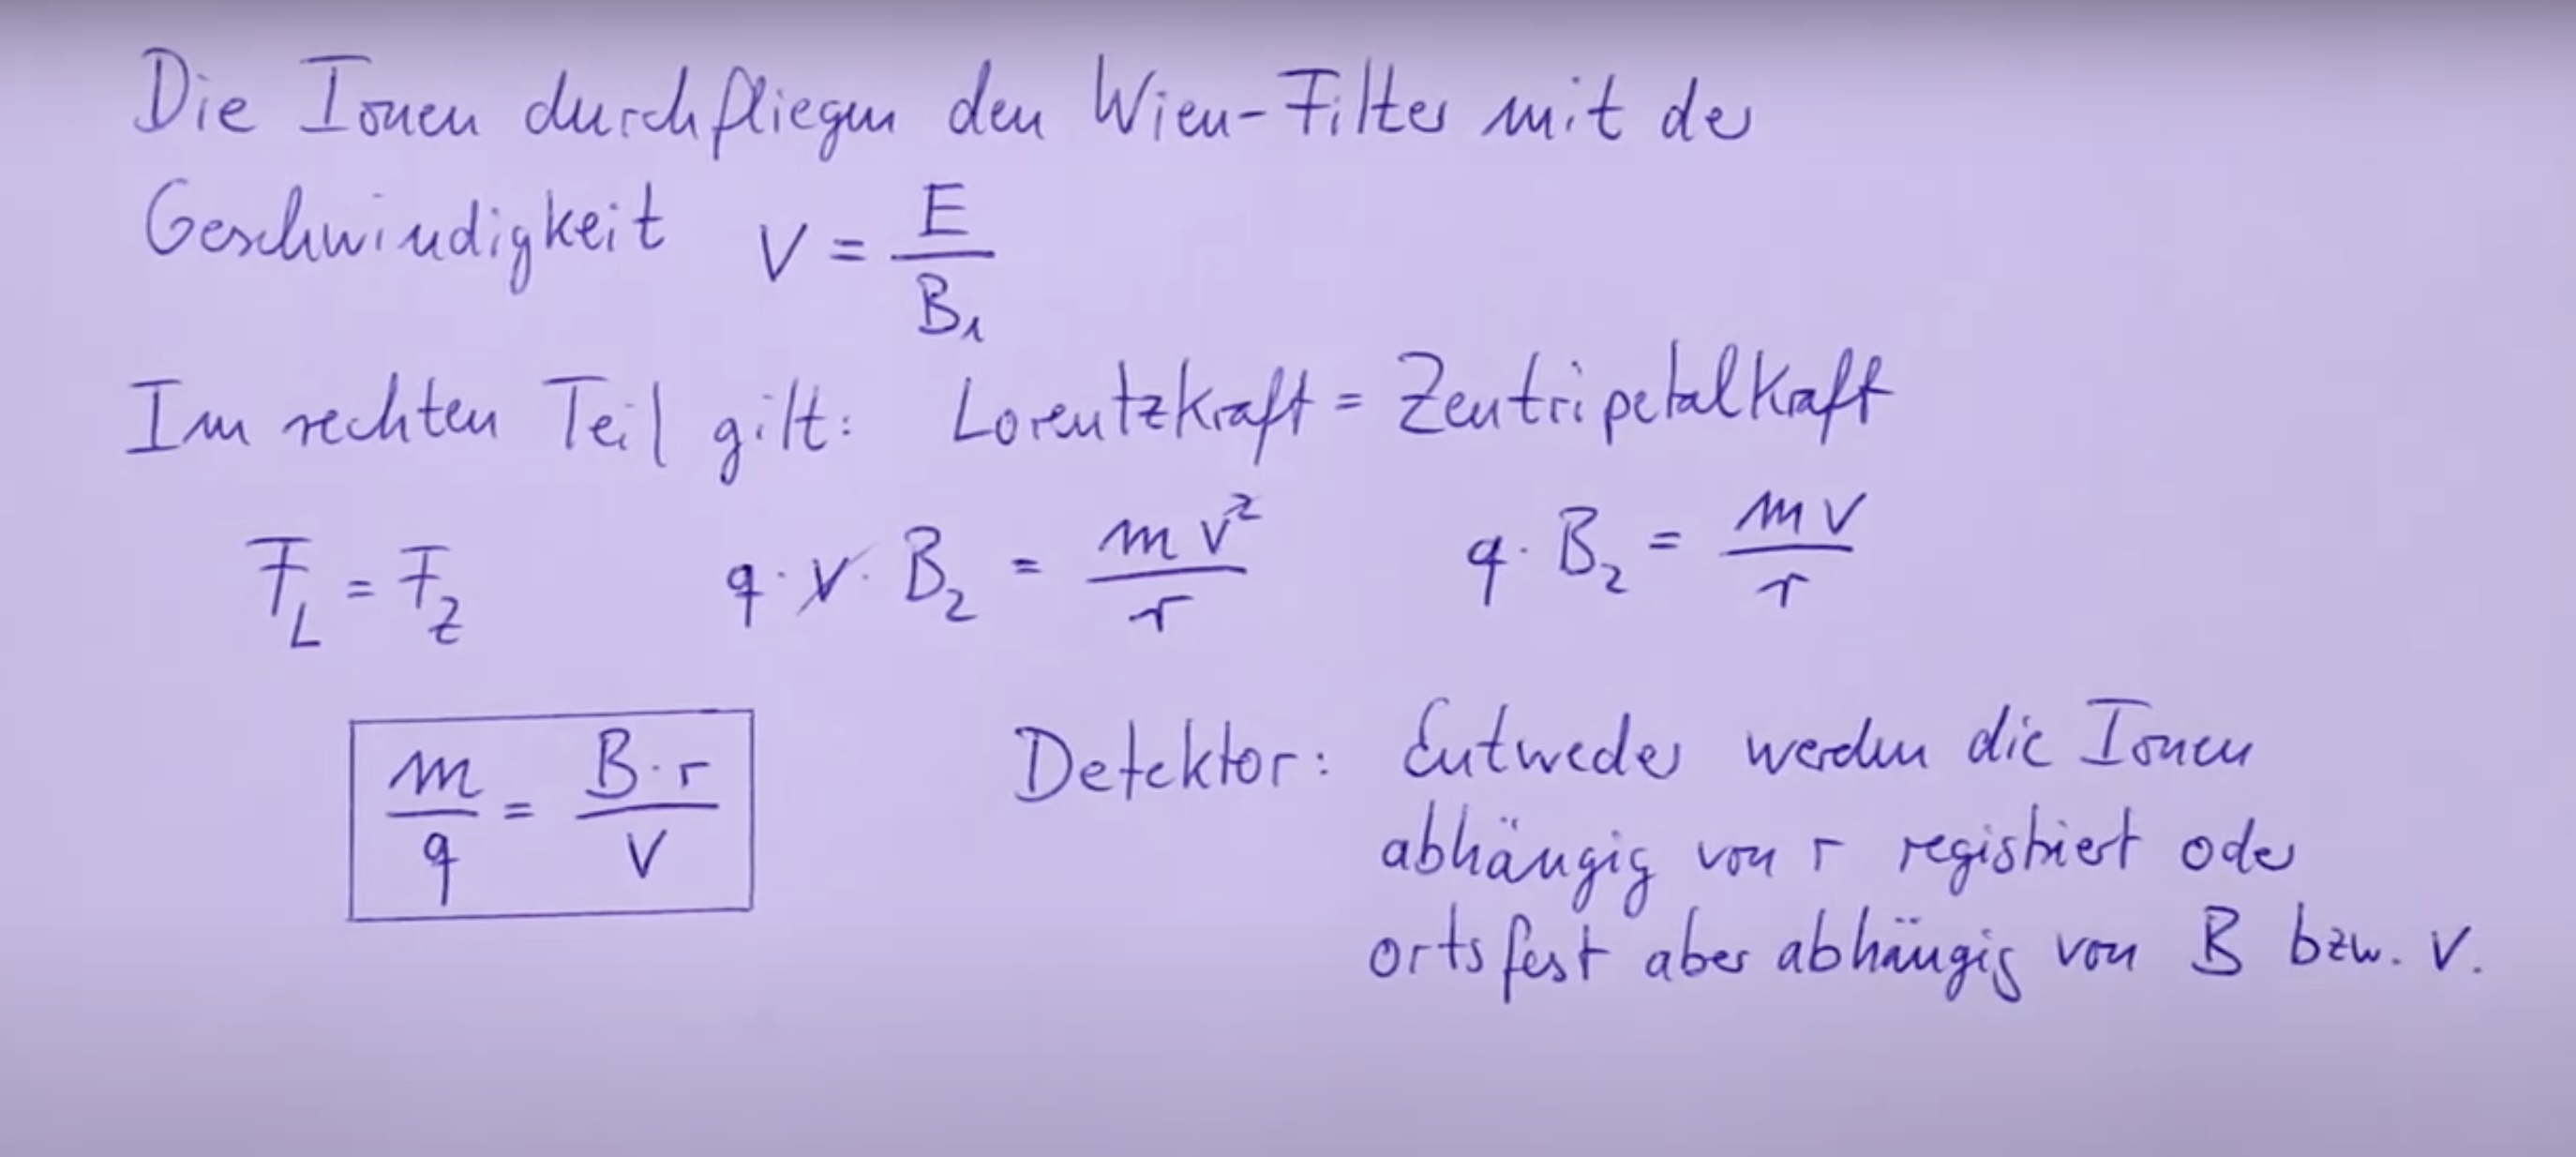 Die Ionen durchfliegen den Wien-Filter mit der
Geschwindigkeit v = E / B₁
Im rechten Teil gilt: Lorentzkraft = Zentripetalkraft
F_L = F_Z q · v · B₂ = m v² / r q · B₂ = m v / r
m / q = B · r / v
Detektor: Entweder werden die Ionen
abhängig von r registriert oder
ortsfest aber abhängig von B bzw. v.